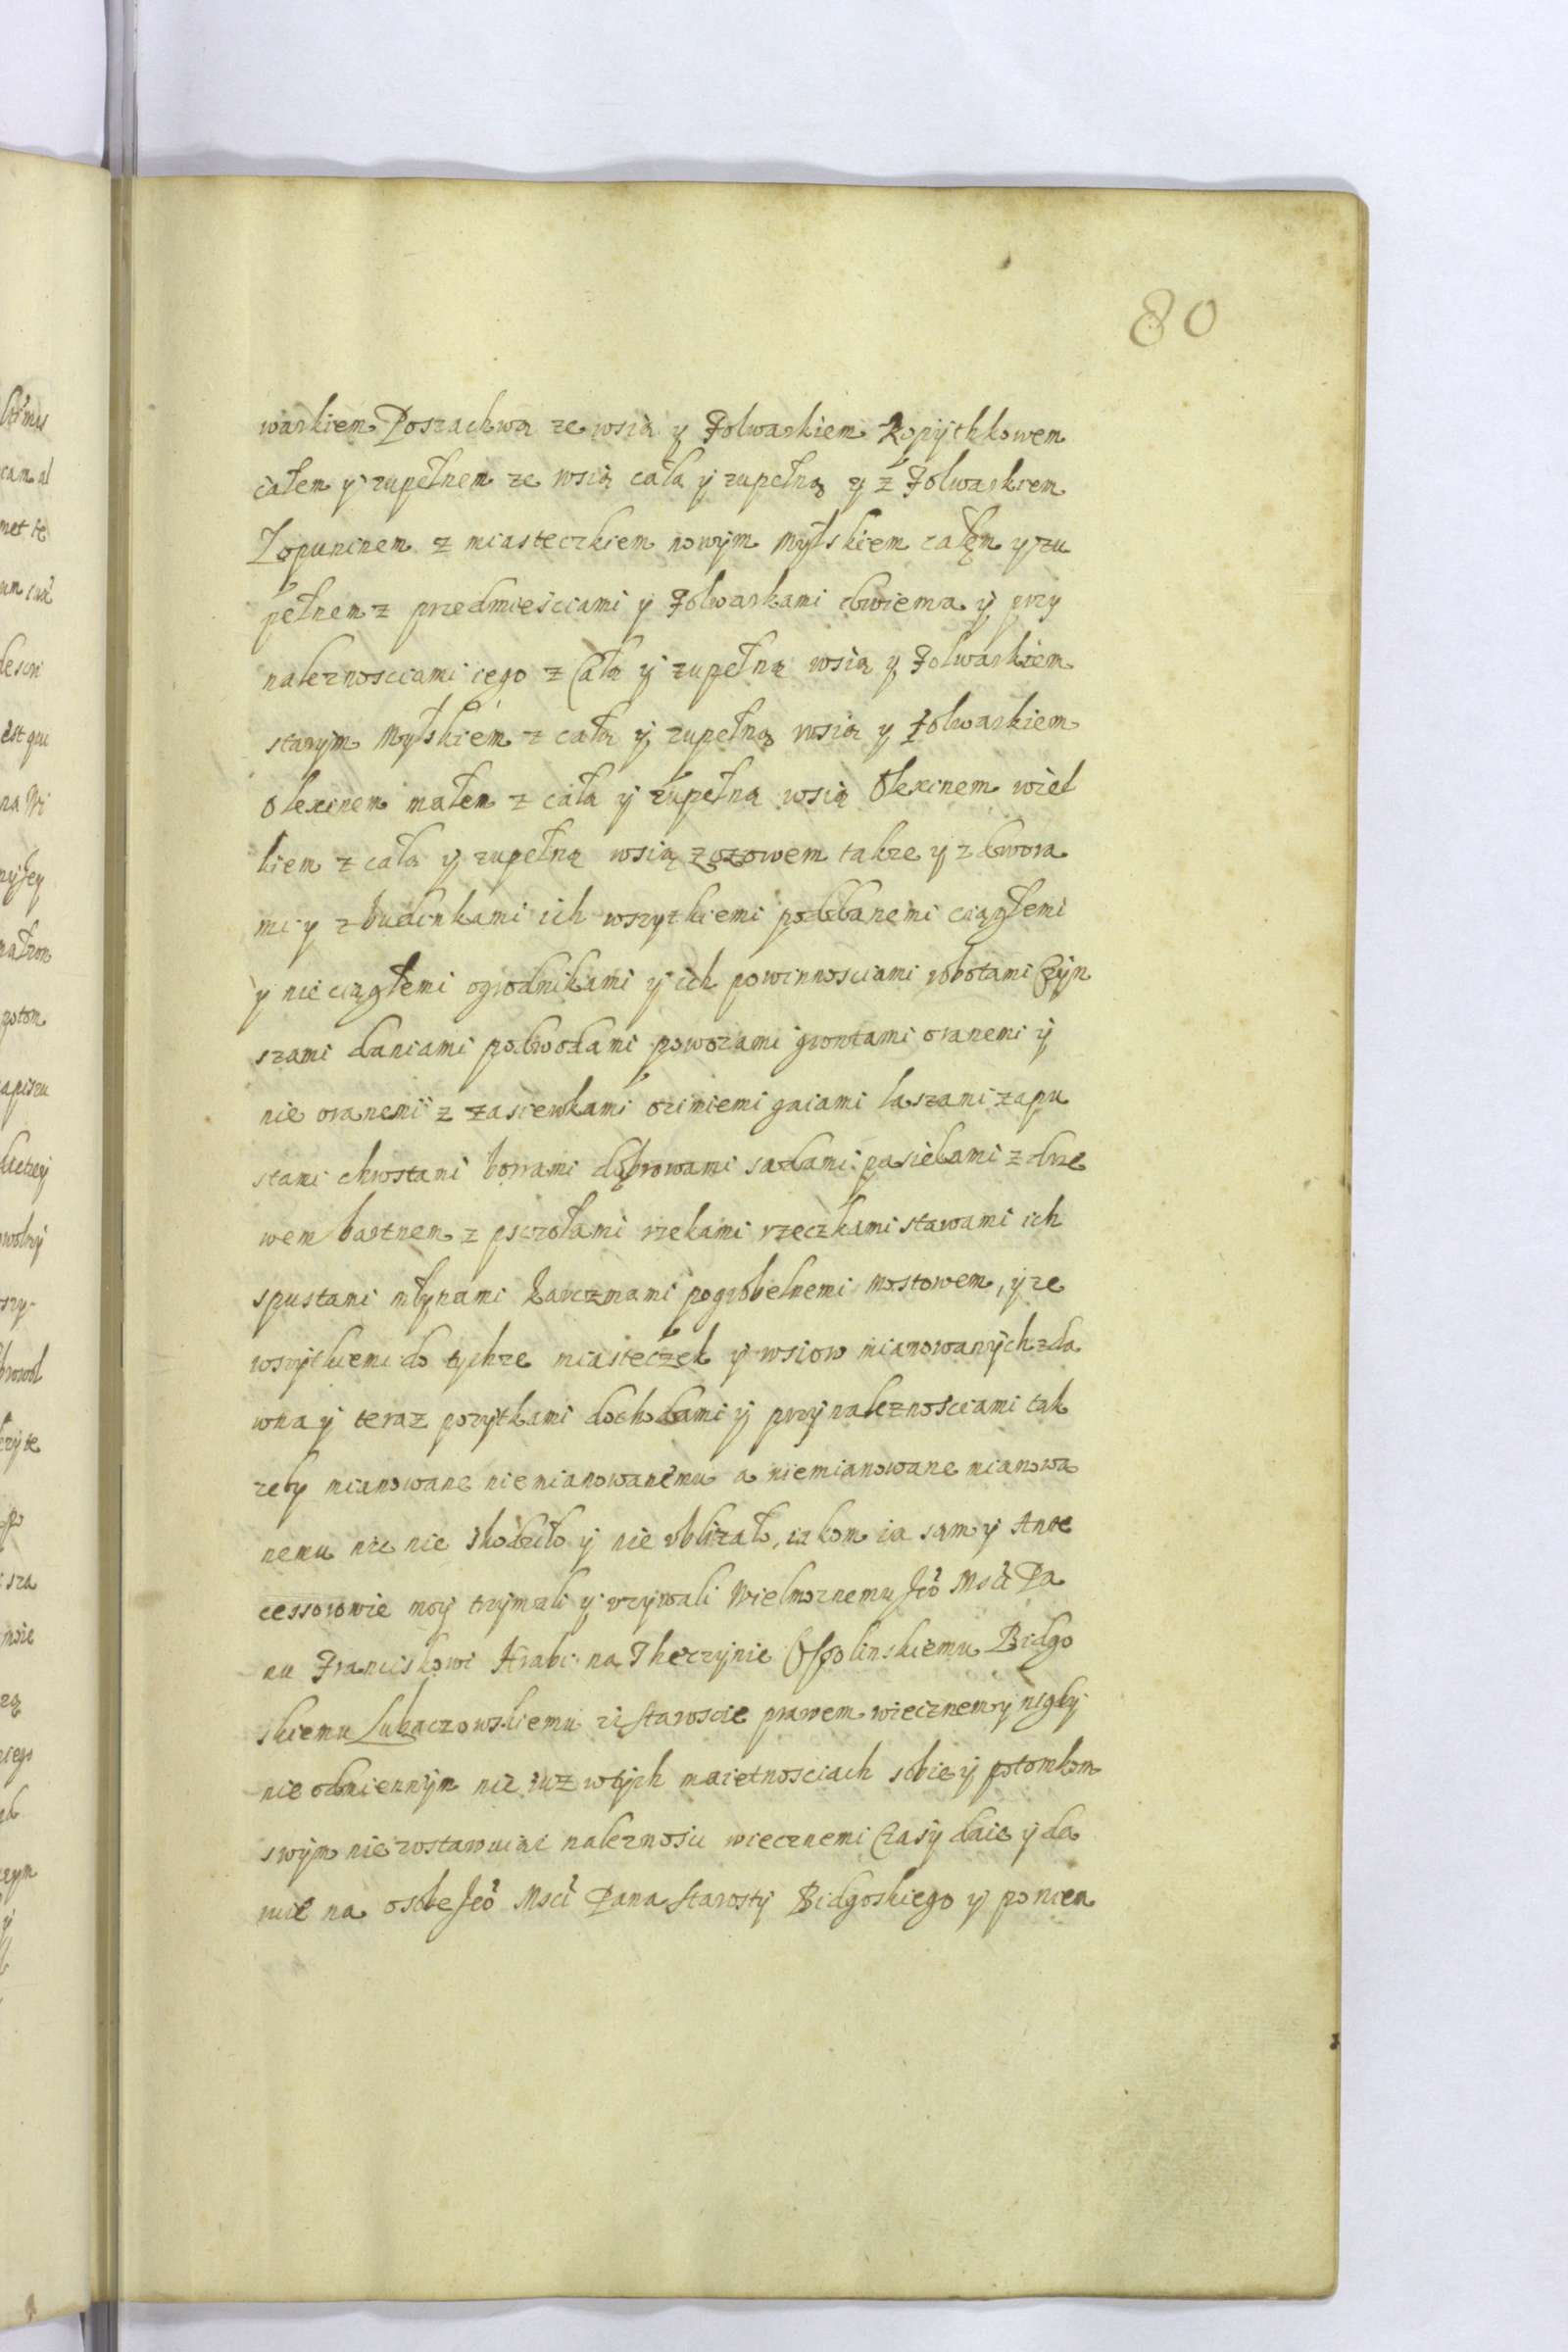 80
warkiem Poszachwą ze wsią y Folwarkiem Kopythkowem
całem y zupełnem ze wsią całą y zupełną y z Folwarkiem
Zopuninem z miasteczkiem nowym Mylskiem całęm y zu
pełnem z przedmiesciami y Folwarkami dwiema y przy
naleznosciami iego z Całą y zupełną wsią y Folwarkiem
starym Mylskiem z całą y zupełną wsią y Folwarkiem
Olexinem małem z całą y zupełną wsią Olexinem wiel
kiem z całą y zupełną wsią Zozowem takze y z dwora
mi y z budinkami ich wszytkiemi poddanemi ciągłemi
y nie ciągłemi ogrodnikami y ich powinnosciami robotami Czyn
szami daniami podwodami powozami grontami oranemi y
nie oranemi z zasiewkami oziniemi gaiami laszami zapu
stami chrostami borami dąbrowami sadami pasiekami z drze
wem bartnem z pszczołami rzekami rzeczkami stawami ich
spustami młynami karczmami pogrobelnemi mostowem, y ze
wszytkiemi do tychze miasteczek y wsiow mianowanych zda
wna y teraz pozytkami dochodami y przynaleznosciami tak
zeby mianowane niemianowanemu a niemianowane mianowa
nemu nic nie skodziło y nie ubliząło, iakom ia sam y Ante
cessorowie moy trzymali y uzywali Wielmoznemu Jeo Msci Pa
nu Franciskowi Hrabi na Theczynie Ossolinskiemu Bidgo
skiemu Lubaczowskiemu &c Staroscie prawem wiecznem y nigdy
nie odmiennym nic iuz w tych maietnosciach sobie y potomkom
swym nie zostawuiąc naleznosci wiecznemi Czasy daie y da
ruie na osobe Jeo Msci Pana Starosty Bidgoskiego y po niem